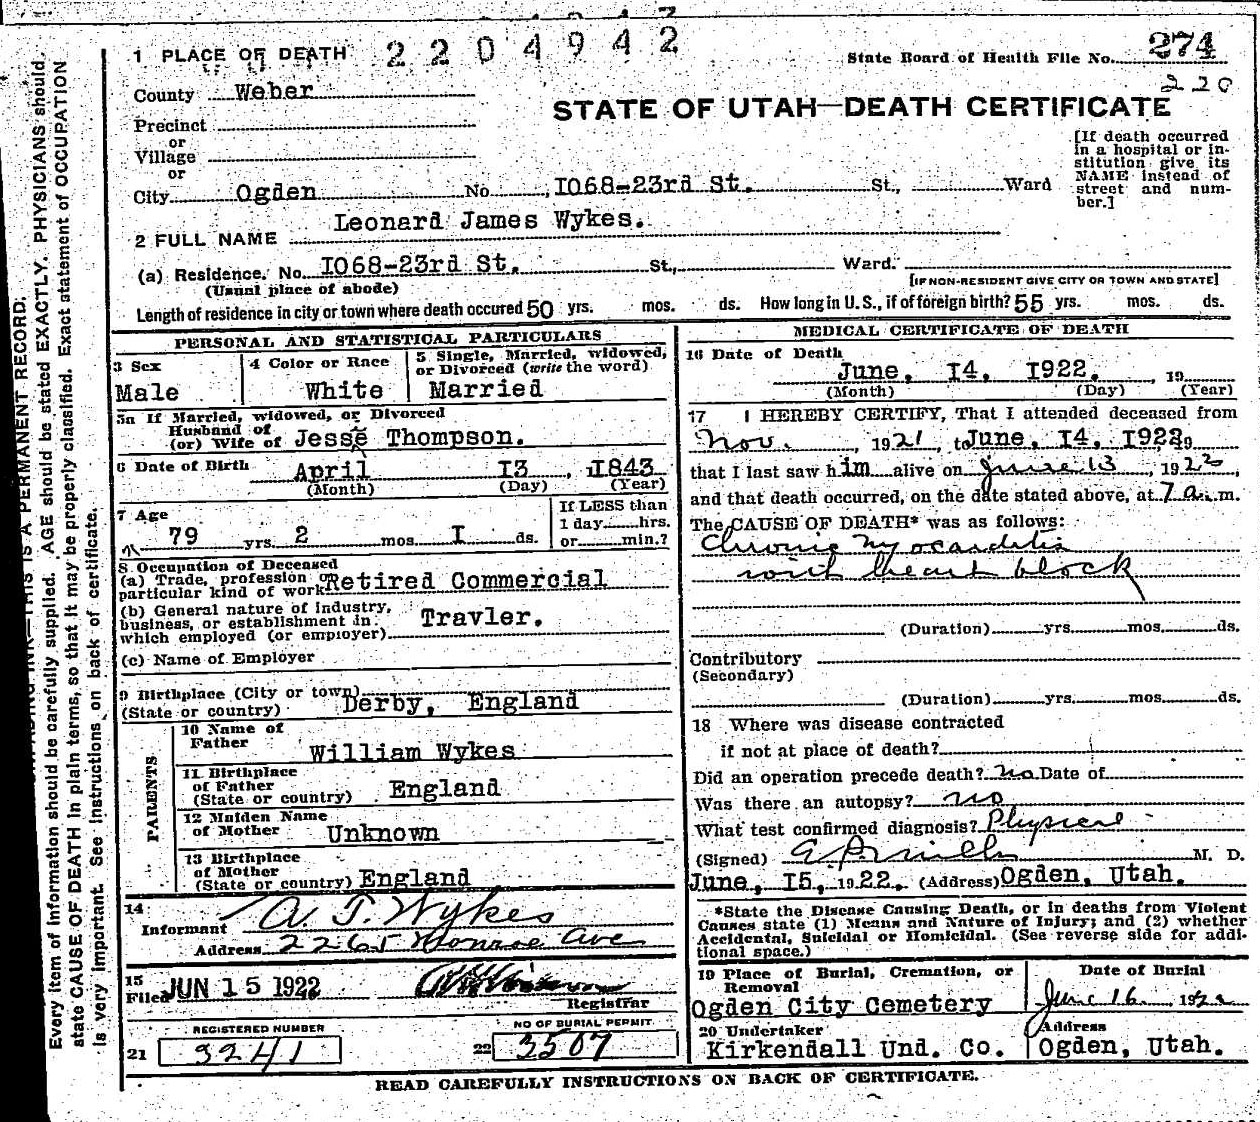 1 PLACE OF DEATH 2204942
State Board of Health File No. 274
220
County Weber
STATE OF UTAH—DEATH CERTIFICATE
Precinct
or
Village
or
City Ogden No. 1068-23rd St. St., Ward
[If death occurred
in a hospital or in-
stitution give its
NAME instead of
street and num-
ber.]
2 FULL NAME Leonard James Wykes.
(a) Residence. No. 1068-23rd St. St., Ward.
(Usual place of abode) [IF NON-RESIDENT GIVE CITY OR TOWN AND STATE]
Length of residence in city or town where death occured 50 yrs. mos. ds. How long in U. S., if of foreign birth? 55 yrs. mos. ds.
PERSONAL AND STATISTICAL PARTICULARS
3 Sex
Male
4 Color or Race
White
5 Single, Married, widowed,
or Divorced (write the word)
Married
5a If Married, widowed, or Divorced
Husband of
(or) Wife of Jesse Thompson.
6 Date of Birth April 13, 1843
(Month) (Day) (Year)
7 Age
79 yrs. 2 mos. 1 ds.
If LESS than
1 day hrs.
or min.?
8 Occupation of Deceased
(a) Trade, profession or
particular kind of work Retired Commercial
(b) General nature of Industry,
business, or establishment in Travler.
which employed (or employer)
(c) Name of Employer
9 Birthplace (City or town)
(State or country) Derby, England
PARENTS
10 Name of
Father William Wykes
11 Birthplace
of Father
(State or country) England
12 Maiden Name
of Mother Unknown
13 Birthplace
of Mother
(State or country) England
14
Informant A. T. Wykes
Address 2265 Monroe Ave
15
Filed JUN 15 1922
Registrar
REGISTERED NUMBER
21 3241
NO OF BURIAL PERMIT
22 3507
MEDICAL CERTIFICATE OF DEATH
16 Date of Death
June, 14, 1922. , 19
(Month) (Day) (Year)
17 I HEREBY CERTIFY, That I attended deceased from
Nov. , 1921 to June, 14, 1922,
that I last saw him alive on June 13 , 1922,
and that death occurred, on the date stated above, at 7 a. m.
The CAUSE OF DEATH* was as follows:
Chronic myocarditis
with heart block
(Duration) yrs. mos. ds.
Contributory
(Secondary)
(Duration) yrs. mos. ds.
18 Where was disease contracted
if not at place of death?
Did an operation precede death? no Date of
Was there an autopsy? no
What test confirmed diagnosis? Physical
(Signed) M. D.
June, 15, 1922. (Address) Ogden, Utah.
*State the Disease Causing Death, or in deaths from Violent
Causes state (1) Means and Nature of Injury; and (2) whether
Accidental, Suicidal or Homicidal. (See reverse side for addi-
tional space.)
19 Place of Burial, Cremation, or
Removal
Ogden City Cemetery
Date of Burial
June 16 1922
20 Undertaker
Kirkendall Und. Co.
Address
Ogden, Utah.
READ CAREFULLY INSTRUCTIONS ON BACK OF CERTIFICATE.
THIS IS A PERMANENT RECORD.
Every item of information should be carefully supplied. AGE should be stated EXACTLY. PHYSICIANS should
state CAUSE OF DEATH in plain terms, so that it may be properly classified. Exact statement of OCCUPATION
is very important. See instructions on back of certificate.